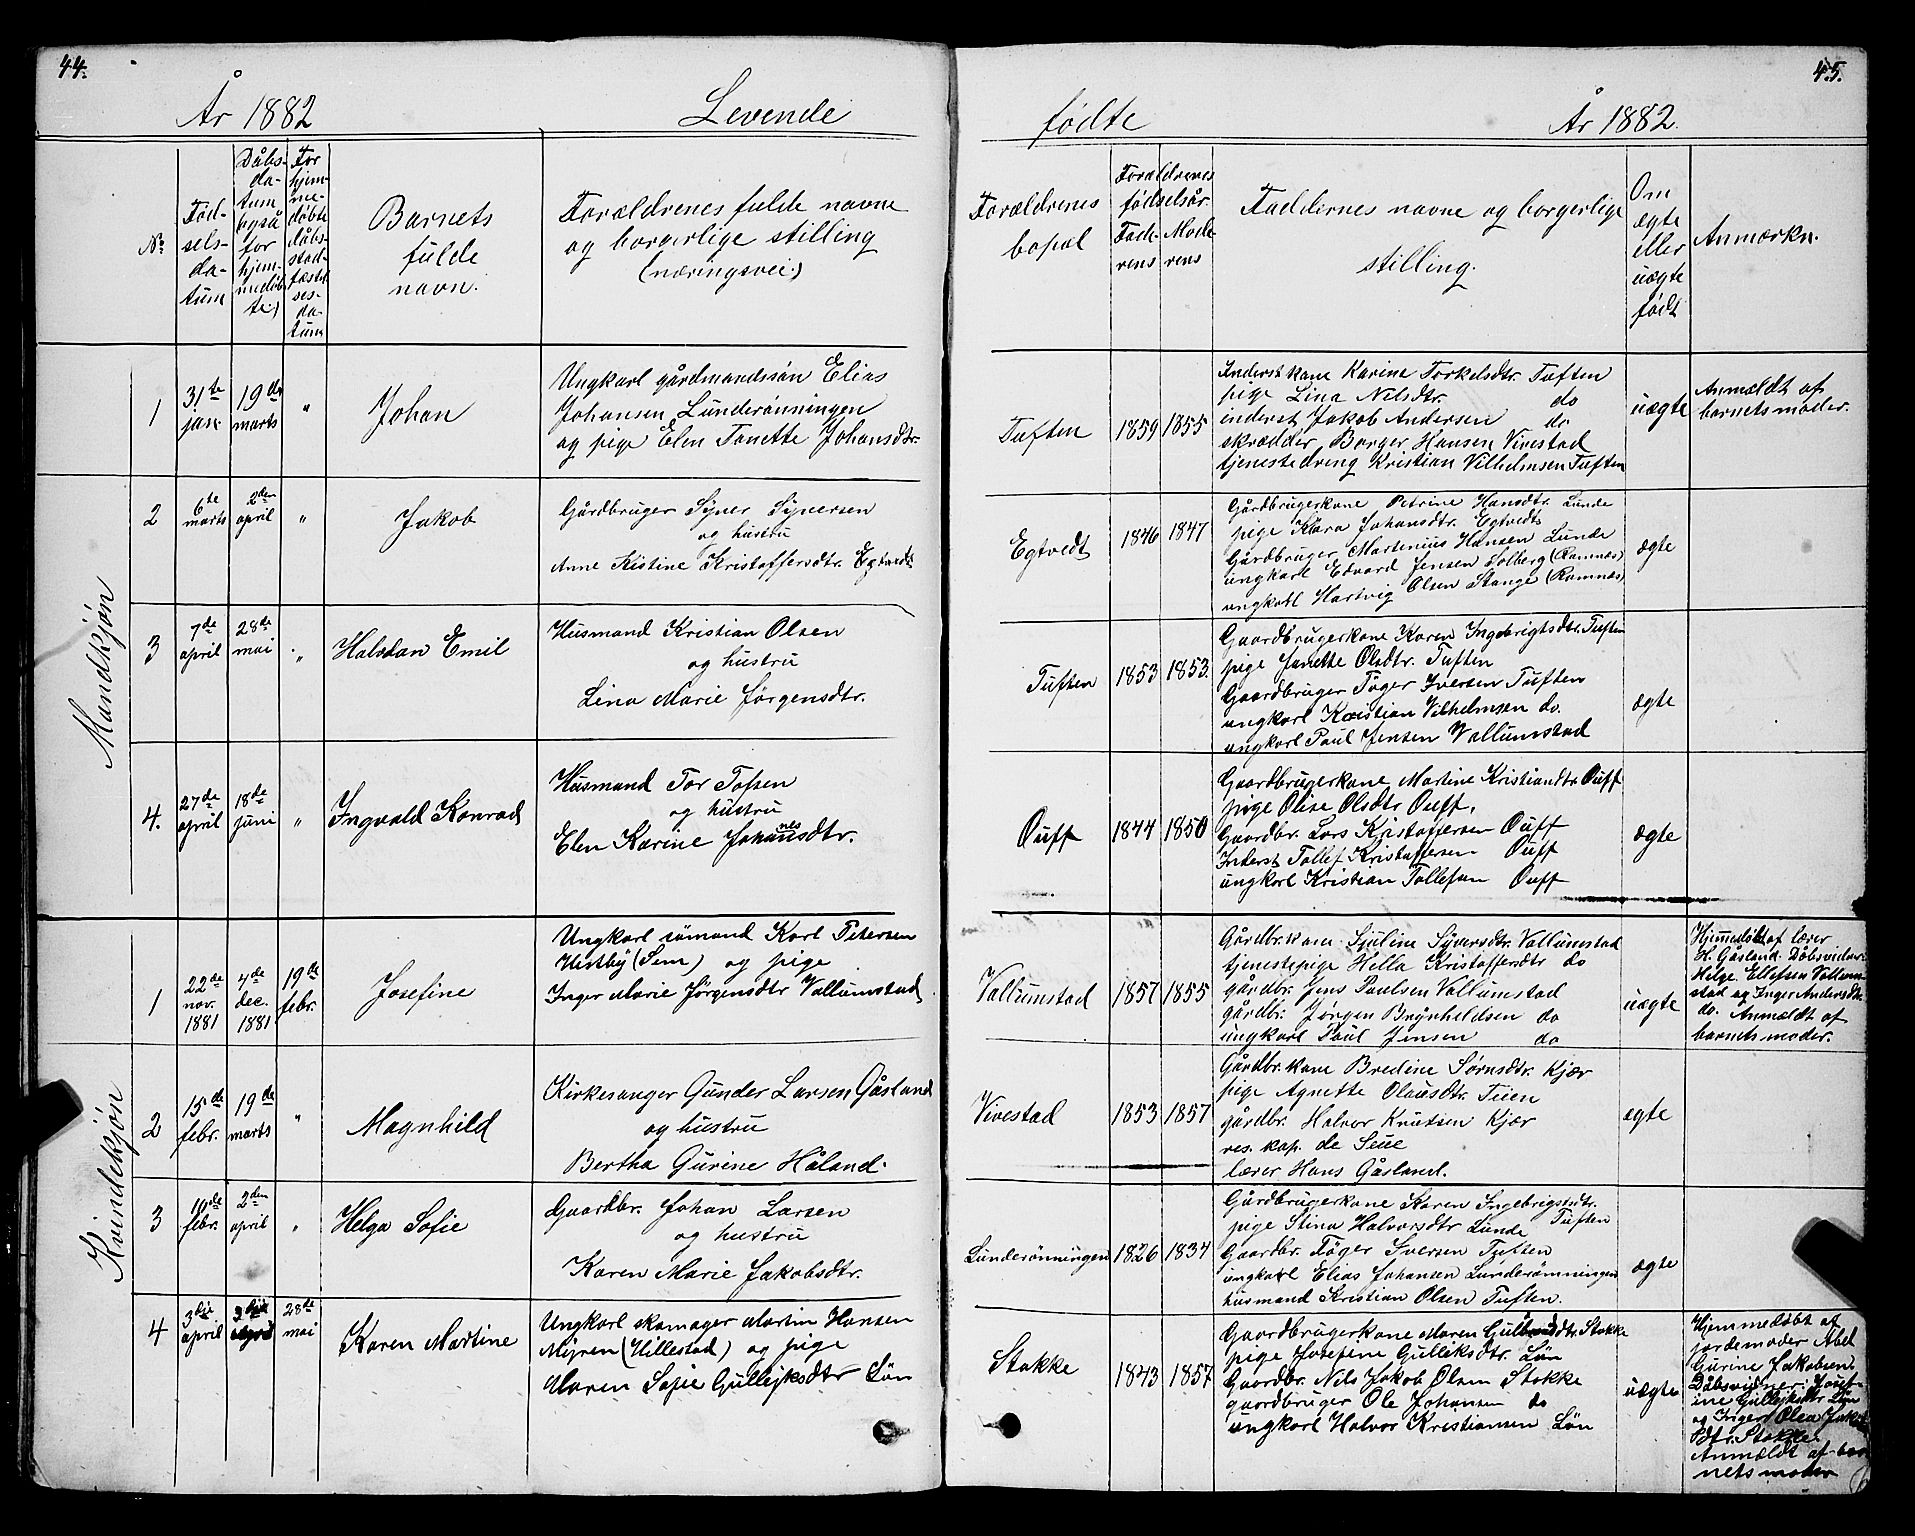 44.
År 1882 Levende
No
Fød-
sels-
da-
tum
Dåbs-
da-
tum
(også
for
hjem-
medøb-
te)
For
hjem-
me-
døbte
dåbs-
stad-
fæstel-
ses-
da-
tum
Barnets
fulde
navn.
Forældrenes fulde navne
og borgerlige stilling
(næringsvei.)
Mandkjøn
1 31te jan. 19de marts " Johan
Ungkarl gårdmandssøn Elias
Johansen Lunderønningen
og pige Elen Tonette Johansdtr.
2 6te marts 2den april " Jakob
Gårdbruger Syver Syversen
og hustru
Anne Kistine Kristoffersdtr. Egtvedt
3 7de april 28de mai " Halvdan Emil
Husmand Kristian Olsen
og hustru
Lina Marie Jørgensdtr.
4. 27de april 18de juni " Ingvald Konrad
Husmand Tor Tofsen
og hustru
Elen Karine Johannesdtr.
Kvindekjøn
1 22de nov. 1881 4de dec. 1881 19de febr. Josefine
Ungkarl sømand Karl Petersen
(Sem) og pige
Inger Marie Jørgensdtr Vallumstad
2 15de febr. 19de marts " Magnhild
Kirkesanger Gunder Larsen Gåsland
og hustru
Bertha Gurine Håland.
3 10de febr. 2den april " Helga Sofie
Gaardbr. Johan Larsen
og hustru
Karen Marie Jakobsdtr.
4 3die april 3die april 28de mai Karen Martine
Ungkarl skomager Martin Hansen
Myren (Hillestad) og pige
Maren Sofie Gullejksdtr Løn
45.
fødte År 1882.
Forældrenes
bopæl
Forældrenes
fødselsår.
Fade-
rens
Mode
rens
Faddernes navne og borgerlige
stilling.
Om
ægte
eller
uægte
født
Anmærkn.
Tuften 1859 1855
Inderst kane Karine Torkelsdtr. Tuften
pige Lina Nilsdtr. do
inderst Jakob Andersen do
skrædder Borger Hansen Vivestad
tjenestedreng Kristian Vilhelmsen Tuften
uægte
Anmeldt af
barnets moder.
Egtvedt 1846 1847
Gårdbrugerkane Petrine Hansdtr. Lunde
pige Klara Johansdtr. Egtvedt
Gårdbruger Martenius Hansen Lunde
ungkarl Edvard Jensen Solberg (Ramnæs)
ungkarl Hartvig Olsen Stange (Ramnæs)
ægte
Tuften 1853 1853.
Gaardbrugerkane Karen Ingebrigtsdtr. Tuften
pige Janette Olsdtr. Tuften
Gaardbruger Tøger Iversen Tuften
ungkarl Kristian Vilhelmsen do.
ungkarl Paul Jensen Vallumstad
ægte
Ouff 1844 1850
Gaardbrugerkane Martine Kristiandtr. Ouff
pige Olise Olsdtr Ouff,
Gaardbr. Lars Kristoffersen Ouff
Inderst Tollef Kristoffersen Ouff
ungkarl Kristian Tollefsen Ouff
ægte
Vallumstad 1857 1855
Gårdbr.kane Sjuline Syversdtr. Vallumstad
tjenestepige Hella Kristoffersdtr do
gårdbr. Jens Paulsen Vallumstad
gårdbr. Jørgen Brynhildsen do
ungkarl Paul Jensen do
uægte
Hjemmedøbt af lærer
H. Gåsland. Dåbsvidner
Helge Ellefsen Vallum-
stad og Inger Andersdtr
do. Anmeldt af
barnets moder.
Vivestad 1853 1857
Gårdbr.kane Bredine Sørnsdtr. Kjær
pige Agnette Olausdtr. Teien
gårdbr. Halvor Knutsen Kjær
res. kap. de Seue
lærer Hans Gåsland.
ægte
Lunderønningen 1826 1834
Gårdbrugerkane Karen Ingebrigtsdtr.
pige Stina Halvorsdtr Lunde Tuften
Gaardbr. Tøger Iversen Tuften
ungkarl Elias Johansen Lunderønningen
husmand Kristian Olsen Tuften.
ægte
Stokke 1843 1857
Gaardbrugerkane Maren Stokke
pige Josefine Gulliksdtr. Løn
Gaardbr. Nils Jakob Olsen Stokke
gaardbruger Ole Johansen do
ungkarl Halvor Kristiansen Løn
uægte
Hjemmedøbt af
jordemoder Abel
Gurine Jakobsen.
Dåbsvidner: Josef-
ine Gullejksdtr Løn
og Inger Olea Jakobs
dtr. Stokke.
Anmeldt af bar-
nets moder